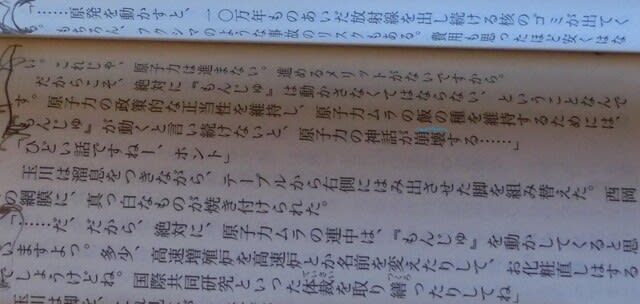 ……原発を動かすと、一〇万年ものあいだ放射線を出し続ける核のゴミが出てく
る。もちろん、フクシマのような事故のリスクもある。費用も思ったほど安くはな
い。これじゃ、原子力は進まない。進めるメリットがないですから。
だからこそ、絶対に『もんじゅ』は動かさなくてはならない、ということなんで
す。原子力の政策的な正当性を維持し、原子力ムラの飯の種を維持するためには、
『もんじゅ』が動くと言い続けないと、原子力の神話が崩壊する……」
「ひどい話ですねー、ホント」
玉川は溜息をつきながら、テーブルから右側にはみ出させた脚を組み替えた。西岡
の網膜に、真っ白なものが焼き付けられた。
「……だ、だから、絶対に、原子力ムラの連中は、『もんじゅ』を動かしてくると思
いますよっ。多少、高速増殖炉を高速炉とか名前を変えたりして、お化粧直しはする
でしょうけどね。国際共同研究といった体裁を取り繕ったりしてね
玉川は脚を、